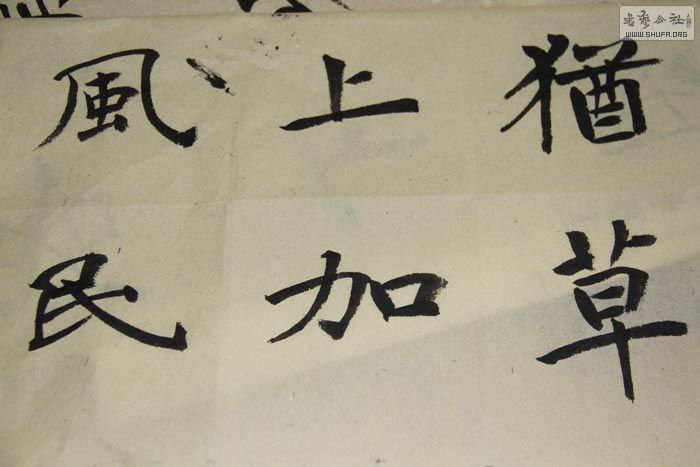 猶草
上加
風民
書藝公社
WWW.SHUFA.ORG